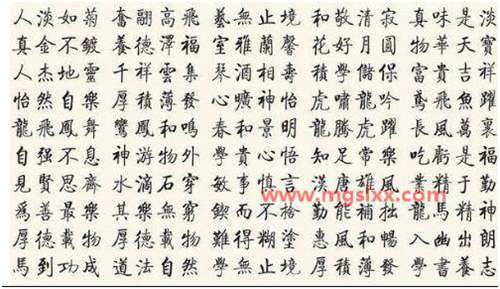 人淡如菊 奮翮高飛 藝無止境 和敬清寂 真味是淡
真金不鍍 養德澤福 室雅蘭馨 花好月圓 物華天寶
人杰地靈 千祥雲集 琴酒相壽 學儲保 富貴吉祥
怡然自樂 厚積薄發 心曠神怡 虎嘯龍吟 鳶飛魚躍
龍飛鳳舞 鸞鳳和鳴 春和景明 龍騰虎躍 長風萬裏
自强不息 神游物外 學貴心悟 知足常樂 吃虧是福
見賢思齊 水滴石穿 敏事慎言 漢唐雄風 業精于勤
爲善最樂 其樂無窮 鍥而不捨 勤能補拙 龍馬精神
厚德載物 厚德載物 難得糊塗 惠風和暢 入幽出朗
馬到功成 道法自然 學無止境 厚積薄發 學書養志
www.mgslxx.com